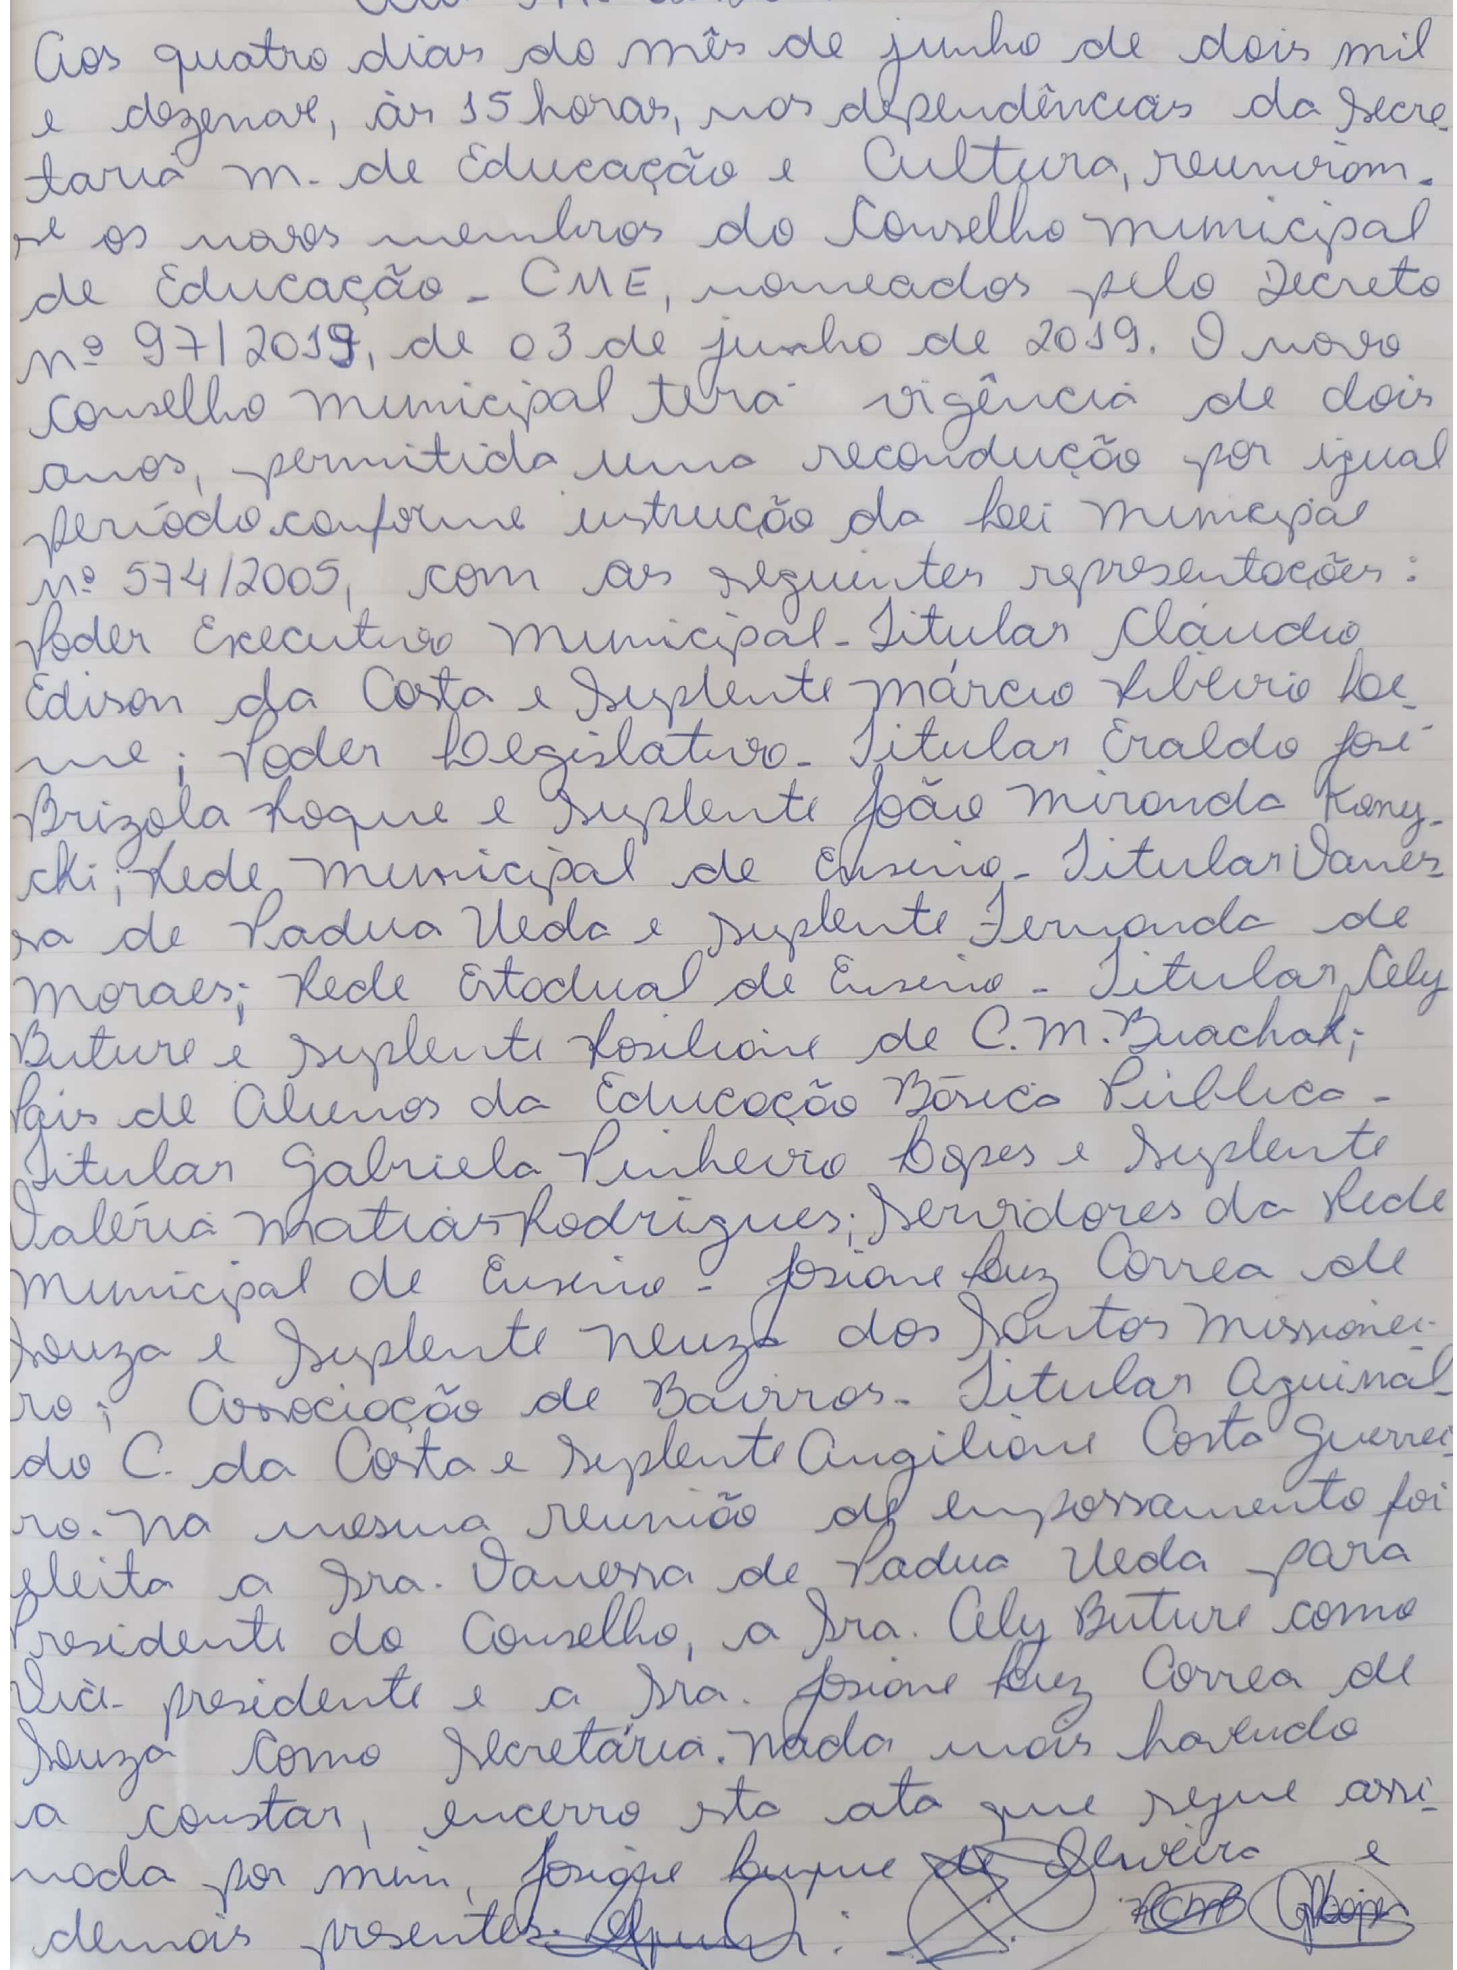 Aos quatro dias do mês de junho de dois mil
e dezenove, às 15 horas, nas dependências da Secre-
taria M. de Educação e Cultura, reuniram-
se os novos membros do Conselho Municipal
de Educação - CME, nomeados pelo Decreto
nº 97/2019, de 03 de junho de 2019. O novo
Conselho Municipal terá vigência de dois
anos, permitida uma recondução por igual
período conforme instrução da Lei Municipal
nº 574/2005, com as seguintes representações:
Poder Executivo Municipal - Titular Cláudio
Edison da Costa e Suplente Márcio Ribeiro Le-
me; Poder Legislativo - Titular Eraldo José
Brizola Roque e Suplente João Miranda Kony-
cki; Rede Municipal de Ensino - Titular Vanes-
sa de Padua Ueda e Suplente Fernanda de
Moraes; Rede Estadual de Ensino - Titular Cely
Buture e Suplente Rosiliane de C. M. Buachak;
Pais de Alunos da Educação Básica Pública -
Titular Gabriela Pinheiro Lopes e Suplente
Valéria Matias Rodrigues; Servidores da Rede
Municipal de Ensino - Josiane Luz Correa de
Souza e Suplente Neuza dos Santos Missionei-
ro; Associação de Bairros - Titular Aguinal-
do C. da Costa e Suplente Angiliane Costa Guerrei-
ro. Na mesma reunião de empossamento foi
eleita a Sra. Vanessa de Padua Ueda para
Presidente do Conselho, a Sra. Cely Buture como
Vice-presidente e a Sra. Josiane Luz Correa de
Souza como Secretária. Nada mais havendo
a constar, encerro esta ata que segue assi-
nada por mim, de Oliveira e
demais presentes.